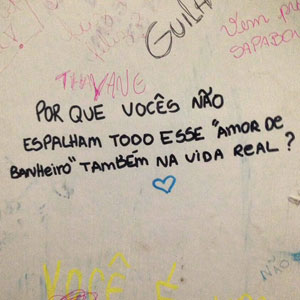 GUILA
Vem pr
SAPABON
THAYANE
POR QUE VOCÊS NÃO
ESPALHAM TODO ESSE "AMOR DE
BANHEIRO" TAMBÉM NA VIDA REAL?
NÃO
VOCÊ É